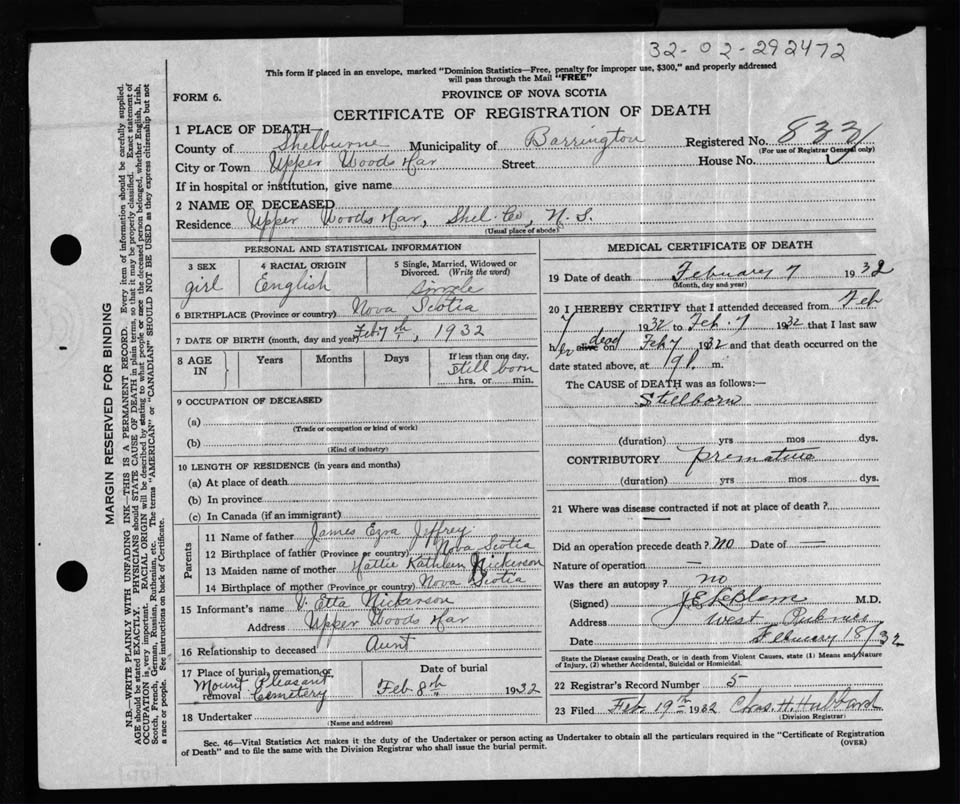 32-02-292472
This form if placed in an envelope, marked "Dominion Statistics—Free, penalty for improper use, $300," and properly addressed
will pass through the Mail "FREE"
FORM 6.
PROVINCE OF NOVA SCOTIA
CERTIFICATE OF REGISTRATION OF DEATH
1 PLACE OF DEATH—
County of Shelburne Municipality of Barrington Registered No. 833
(For use of Registrar General only)
City or Town Upper Woods Har Street House No.
If in hospital or institution, give name
2 NAME OF DECEASED
Residence Upper Woods Har, Shel. Co, N. S.
(Usual place of abode)
PERSONAL AND STATISTICAL INFORMATION
3 SEX 4 RACIAL ORIGIN 5 Single, Married, Widowed or
Divorced. (Write the word)
girl English single
6 BIRTHPLACE (Province or country) Nova Scotia
7 DATE OF BIRTH (month, day and year) Feb 7th, 1932
8 AGE IN Years Months Days If less than one day,
still born
hrs. or min.
9 OCCUPATION OF DECEASED
(a)
(Trade or occupation or kind of work)
(b)
(Kind of industry)
10 LENGTH OF RESIDENCE (in years and months)
(a) At place of death
(b) In province
(c) In Canada (if an immigrant)
Parents
11 Name of father James Ezra Jeffrey
12 Birthplace of father (Province or country) Nova Scotia
13 Maiden name of mother Hattie Kathleen Nickerson
14 Birthplace of mother (Province or country) Nova Scotia
15 Informant's name Etta Nickerson
Address Upper Woods Har
16 Relationship to deceased Aunt
17 Place of burial, cremation or Date of burial
removal Mount Pleasant
Cemetery Feb 8th 1932
18 Undertaker
(Name and address)
MEDICAL CERTIFICATE OF DEATH
19 Date of death February 7 1932
(Month, day and year)
20 I HEREBY CERTIFY that I attended deceased from Feb
7 1932 to Feb. 7 1932 that I last saw
her alive dead on Feb 7 1932 and that death occurred on the
date stated above, at m.
The CAUSE of DEATH was as follows:—
Stillborn
(duration) yrs mos dys.
CONTRIBUTORY premature
(duration) yrs mos dys.
21 Where was disease contracted if not at place of death?
Did an operation precede death? No Date of —
Nature of operation —
Was there an autopsy? no
(Signed) M.D.
Address West Pubnico
Date February 18/32
State the Disease causing Death, or in death from Violent Causes, state (1) Means and Nature
of Injury, (2) whether Accidental, Suicidal or Homicidal.
22 Registrar's Record Number 5
23 Filed Feb. 19th 1932 Chas. H. Hubbard
(Division Registrar)
Sec. 46—Vital Statistics Act makes it the duty of the Undertaker or person acting as Undertaker to obtain all the particulars required in the "Certificate of Registration
of Death" and to file the same with the Division Registrar who shall issue the burial permit.
(OVER)
MARGIN RESERVED FOR BINDING
N.B.—WRITE PLAINLY WITH UNFADING INK—THIS IS A PERMANENT RECORD. Every item of information should be carefully supplied.
AGE should be stated EXACTLY. PHYSICIANS should STATE CAUSE OF DEATH in plain terms, so that it may be properly classified. Exact statement of
OCCUPATION is very important. RACIAL ORIGIN will be described by stating to what people or race the deceased person belonged, whether English, Irish,
Scotch, French, German, Russian, Ruthenian, etc. The terms "AMERICAN" or "CANADIAN" SHOULD NOT BE USED as they express citizenship but not
a race or people. See instructions on back of Certificate.